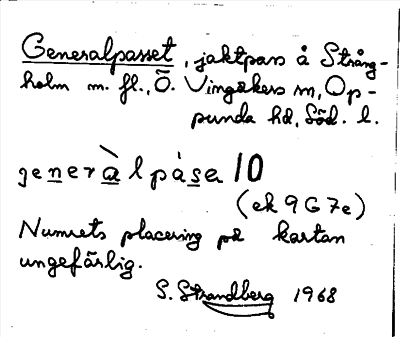 Generalpasset, jaktpass å Sträng-
holm m. fl., Ö. Vingåkers sn, Op-
punda hd, Söd. l.
generàlpáse 10
(ek 9G7e)
Numrets placering på kartan
ungefärlig.
S. Strandberg 1968